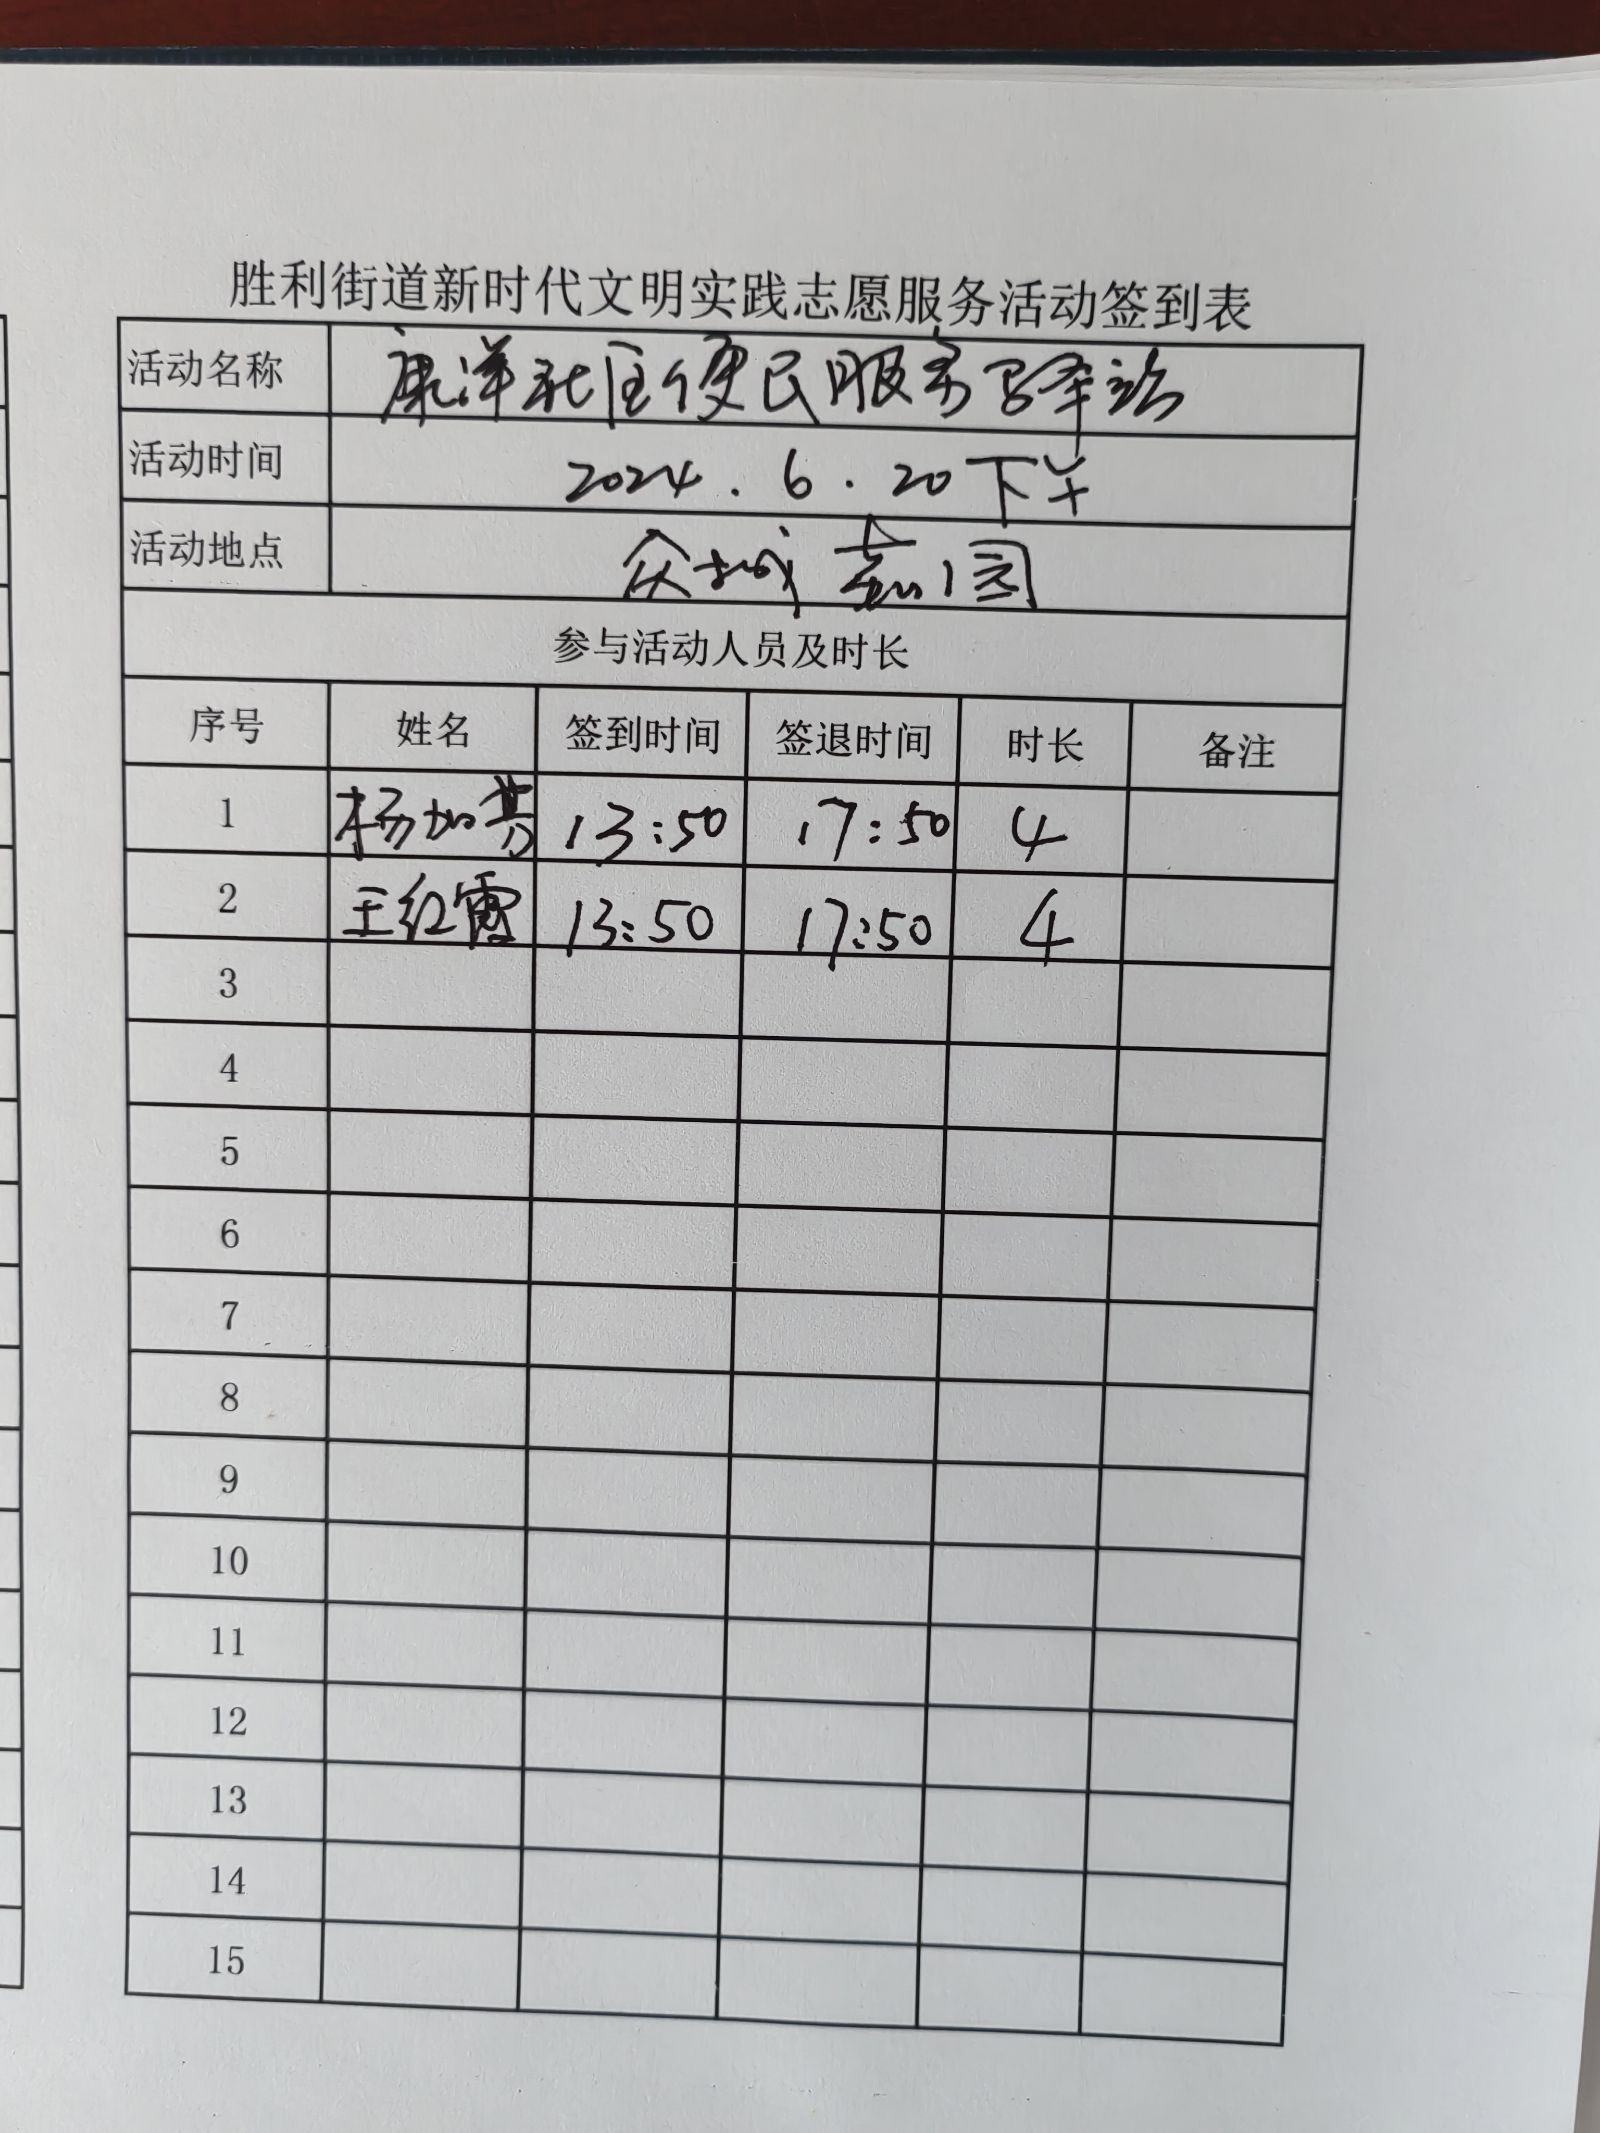 胜利街道新时代文明实践志愿服务活动签到表
活动名称 康洋社区便民服务驿站
活动时间 2024.6.20下午
活动地点 众城嘉园
参与活动人员及时长
序号 姓名 签到时间 签退时间 时长 备注
1 杨如芳 13:50 17:50 4
2 王红霞 13:50 17:50 4
3
4
5
6
7
8
9
10
11
12
13
14
15